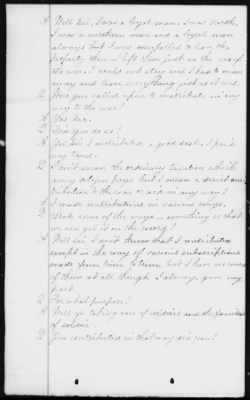 A Well sir, I was a loyal man. I was north,
I was a northern man and a loyal man
always but I was compelled to have the
property there & left him just in the
the war. I could not stay and I had to run
away and leave everything just as it was.
Q Were you called upon to contribute in any
way to the war?
A Yes sir.
Q Did you do so?
A Yes sir I contributed a good deal. I paid
my taxes.
Q I don't mean the ordinary taxation which
every citizen pays but I mean a direct con-
tribution to the war & aid in any way?
A I made contributions in various ways.
Q State some of the ways something so that
we can get it on the record?
A Well sir, I don't know that I contributed
except in the way of various subscriptions
made from time to time but I have no record
of them at all though I always gave my
part.
Q For what purpose?
A Well for taking care of soldiers and the families
of soldiers.
Q You contributed in that way did you?